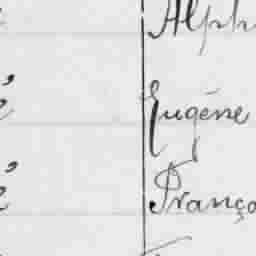 Alph
Eugène
Franço